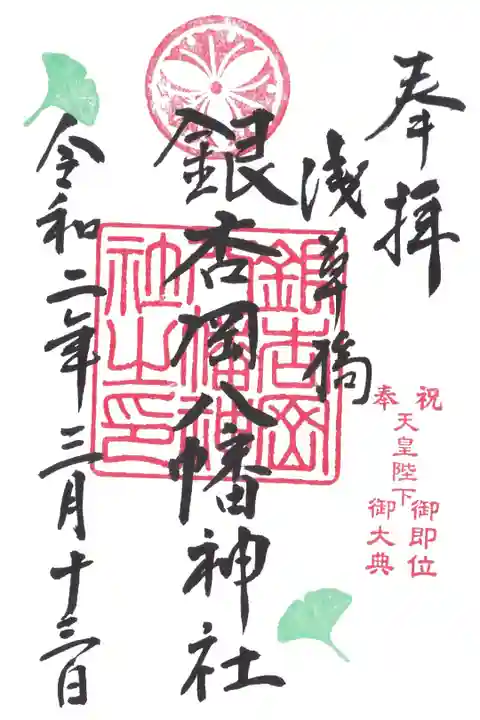 奉拝
浅草橋
祝 天皇陛下 御即位
奉 御大典
銀杏岡八幡神社
銀杏岡
八幡神
社之印
令和二年三月十三日